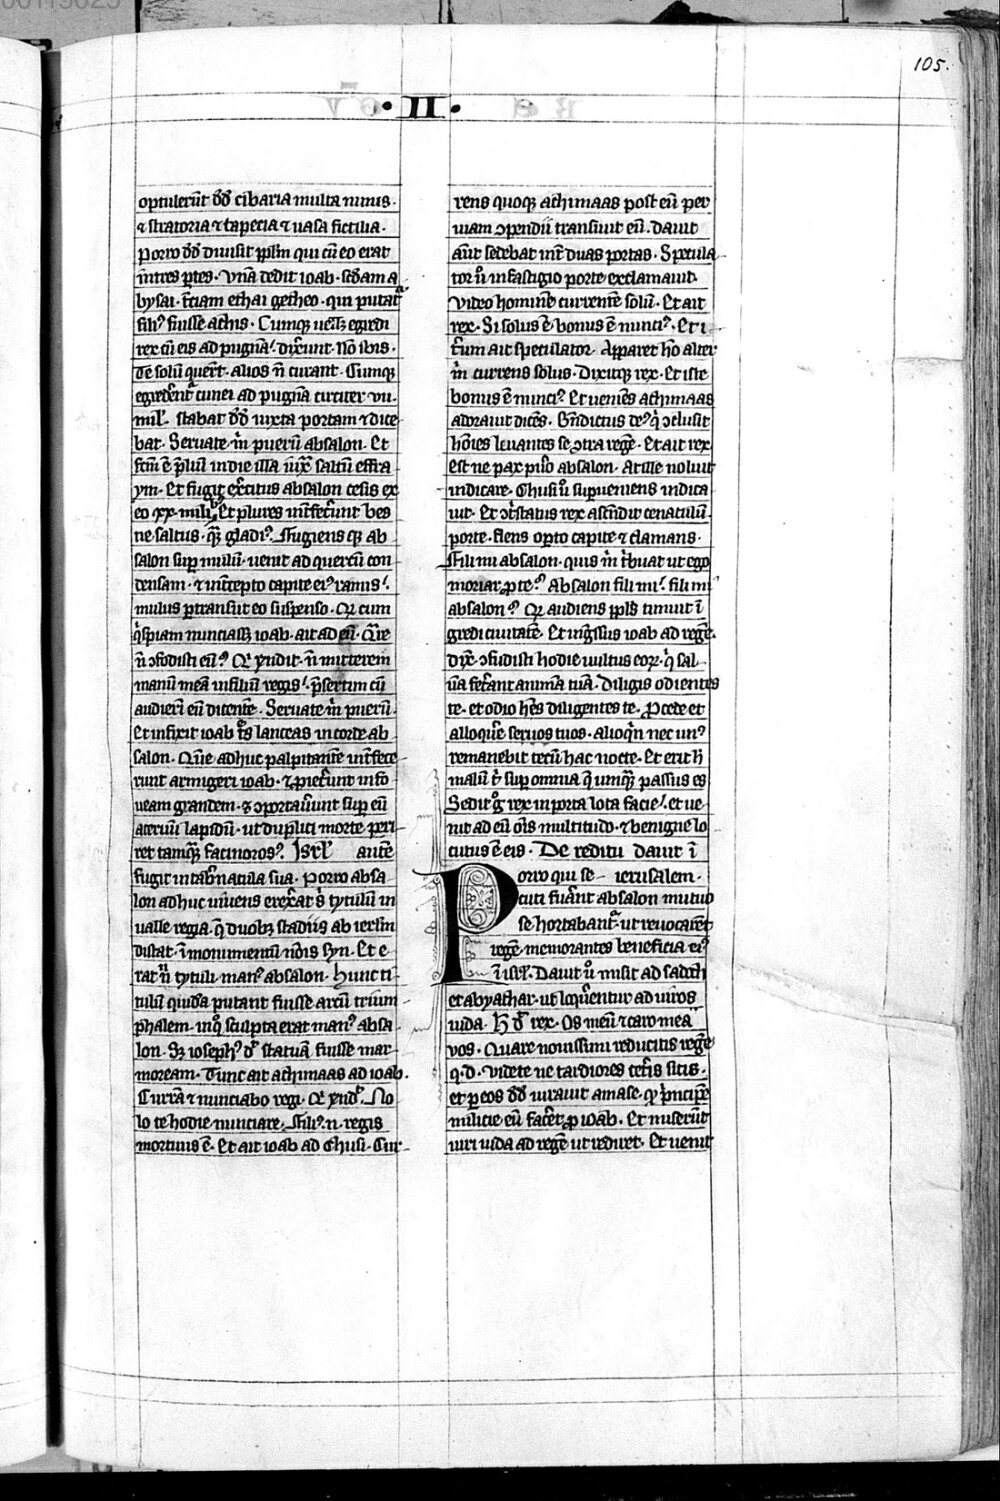 105.
·II·
optulerūt dd̄ cibaria multa nimis·
⁊ stratoria ⁊ tapecia ⁊ uasa fictilia·
Porro dd̄ diuisit pplm̄ qui cū eo erat
in tres ꝑtes· Vnā dedit ioab· scd̄am a
bysai· t̄ciam ethai getheo· qui putat᷑
filiꝰ fuisse achis· Cumqꝫ uellꝫ egredi
rex cū eis ad pugnā· dixerunt· Nō ibis·
Te solū querēt· alios n̄ curant· Cumqꝫ
egrederēt᷑ cunei ad pugnā circiter vii·
mil'· stabat dd̄ iuxta portam ⁊ dice
bat· Seruate m̄ puerū absalon· Et
fcm̄ ē ꝓliū in die illa iux̄ saltū effra
ym· Et fugit ex̄citus absalon cesis ex
eo xx· milibꝰ Et plures int̄fecerunt bes
tie saltus· qͣꝫ gladiꝰ· Fugiens qꝫ ab
salon suꝑ mulū· uenit ad quercū con
densam· ⁊ int̄cepto capite eiꝰ ramis·
mulus ꝑtransiit eo suspenso· Qd̄ cum
qͥspiam nunciassꝫ ioab· ait ad eū· Qͣre
n̄ ꝯfodisti eū? Qͥ r̄ndit· n̄ mitterem
manū meā in filiū regis· p̄sertim cū
audierī eū dicentē· Seruate m̄ puerū·
Et infixit ioab tͤs lanceas in corde ab
salon· Quē adhuc palpitantē int̄fece
runt armigeri ioab· ⁊ ꝓiecerunt in fo
ueam grandem· ⁊ ꝯportauerunt suꝑ eū
aceruū lapidū· ut duplici morte peri
ret tamqͣꝫ facinorosꝰ· Isrl' autē
fugit in tab̄nacula sua· Porro absa
lon adhuc uiuens erexerat sͥ tytulū in
ualle regia· q̄ duobꝫ stadiis ab ierlm̄
distat· ī monumentū nōis sui· Et e
rat nͫ tytuli· manꝰ absalon· Hunc ti
tulū quidā putant fuisse arcū trium
phalem· in qͦ sculpta erat manꝰ absa
lon· Sꝫ iosephꝰ dͭ statuā fuisse mar
moream· Tunc ait achimaas ad ioab·
Currā ⁊ nunciabo regi· Qͥ r̄nd'· No
lo te hodie nunciare· Filiꝰ ·n· regis
mortuus ē· Et ait ioab ad Chusi· Cur
rens quoqꝫ achimaas post eū per
uiam ꝯpendii transiuit eū· dauit
aūt sedebat int̄ duas portas· Specula
tor ū in fastigio porte exclamauit·
Video hominē currentē solū· Et ait
rex· Si solus ē· bonus ē nunciꝰ· Et i
t̄um ait speculator· Apparet hō alter
m̄ currens solus· Dixitqꝫ rex· Et iste
bonus ē nunciꝰ· Et ueniēs achimaas
adorauit dicēs· Bn̄dictus deꝰ qͥ ꝯclusit
hōies leuantes se ꝯtra regē· Et ait rex
est ne pax puͦo absalon· At ille noluit
indicare· Chusi ū suꝑueniens indica
uit· Et ꝯtͥstatus rex ascendit cenaculū
porte· flens opto capite ⁊ clamans·
Fili mi absalon· quis m̄ tͥbuat ut ego
moriar ꝓ te? Absalon fili mi· fili mi
absalon? Qd̄ audiens ppls̄ timuit ī
gredi ciuitatē· Et ingͤssus ioab ad regē·
dix̄· ꝯfudisti hodie uultus eoꝝ· qͥ sal
uā fec̄ant animā tuā· Diligis odientes
te· et odio hn̄s diligentes te· Procede et
alloquē seruos tuos· alioqͥn nec unꝰ
remanebit tecū hac nocte· Et erit h̄
malū tͥ suꝑ omnia q̄ umqͣꝫ passus es
Sedit gͦ rex in porta lota facie· et ue
nit ad eū om̄is multitudo· ⁊ benigne lo
cutus ē eis· De reditu dauit ī
Porro qui se ierusalem·
cuti fuerant absalon mutuo
se hortabant᷑ ut reuocarēt
regē· memorantes beneficia eiꝰ
ī isrl'· Dauit ū misit ad sadoch
et abyathar· ut loquerentur ad uiros
iuda· H̄ dͭ rex· Os meū ⁊ caro mea
vos· Quare nouissimi reducitis regē
q·d· videte ne tardiores cet̄is sitis·
et ꝑ eos dd̄ iurauit amase· qͥ pͥncipē
milicie eū facēt ꝓ ioab· Et miserūt
uiri iuda ad regē ut rediret· Et uenit